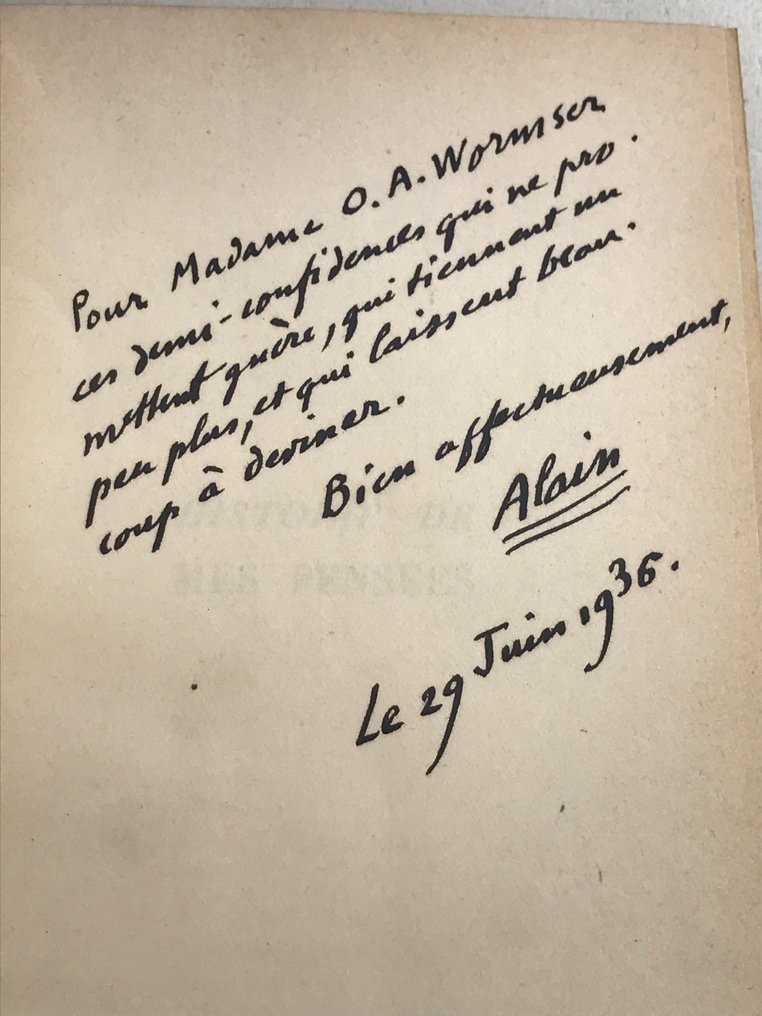 Pour Madame O. A. Wormser
ces demi-confidences qui ne pro-
mettent guère, qui tiennent un
peu plus, et qui laissent beau-
coup à deviner.
Bien affectueusement,
Alain
HISTOIRE DE
MES PENSÉES
Le 29 Juin 1936.